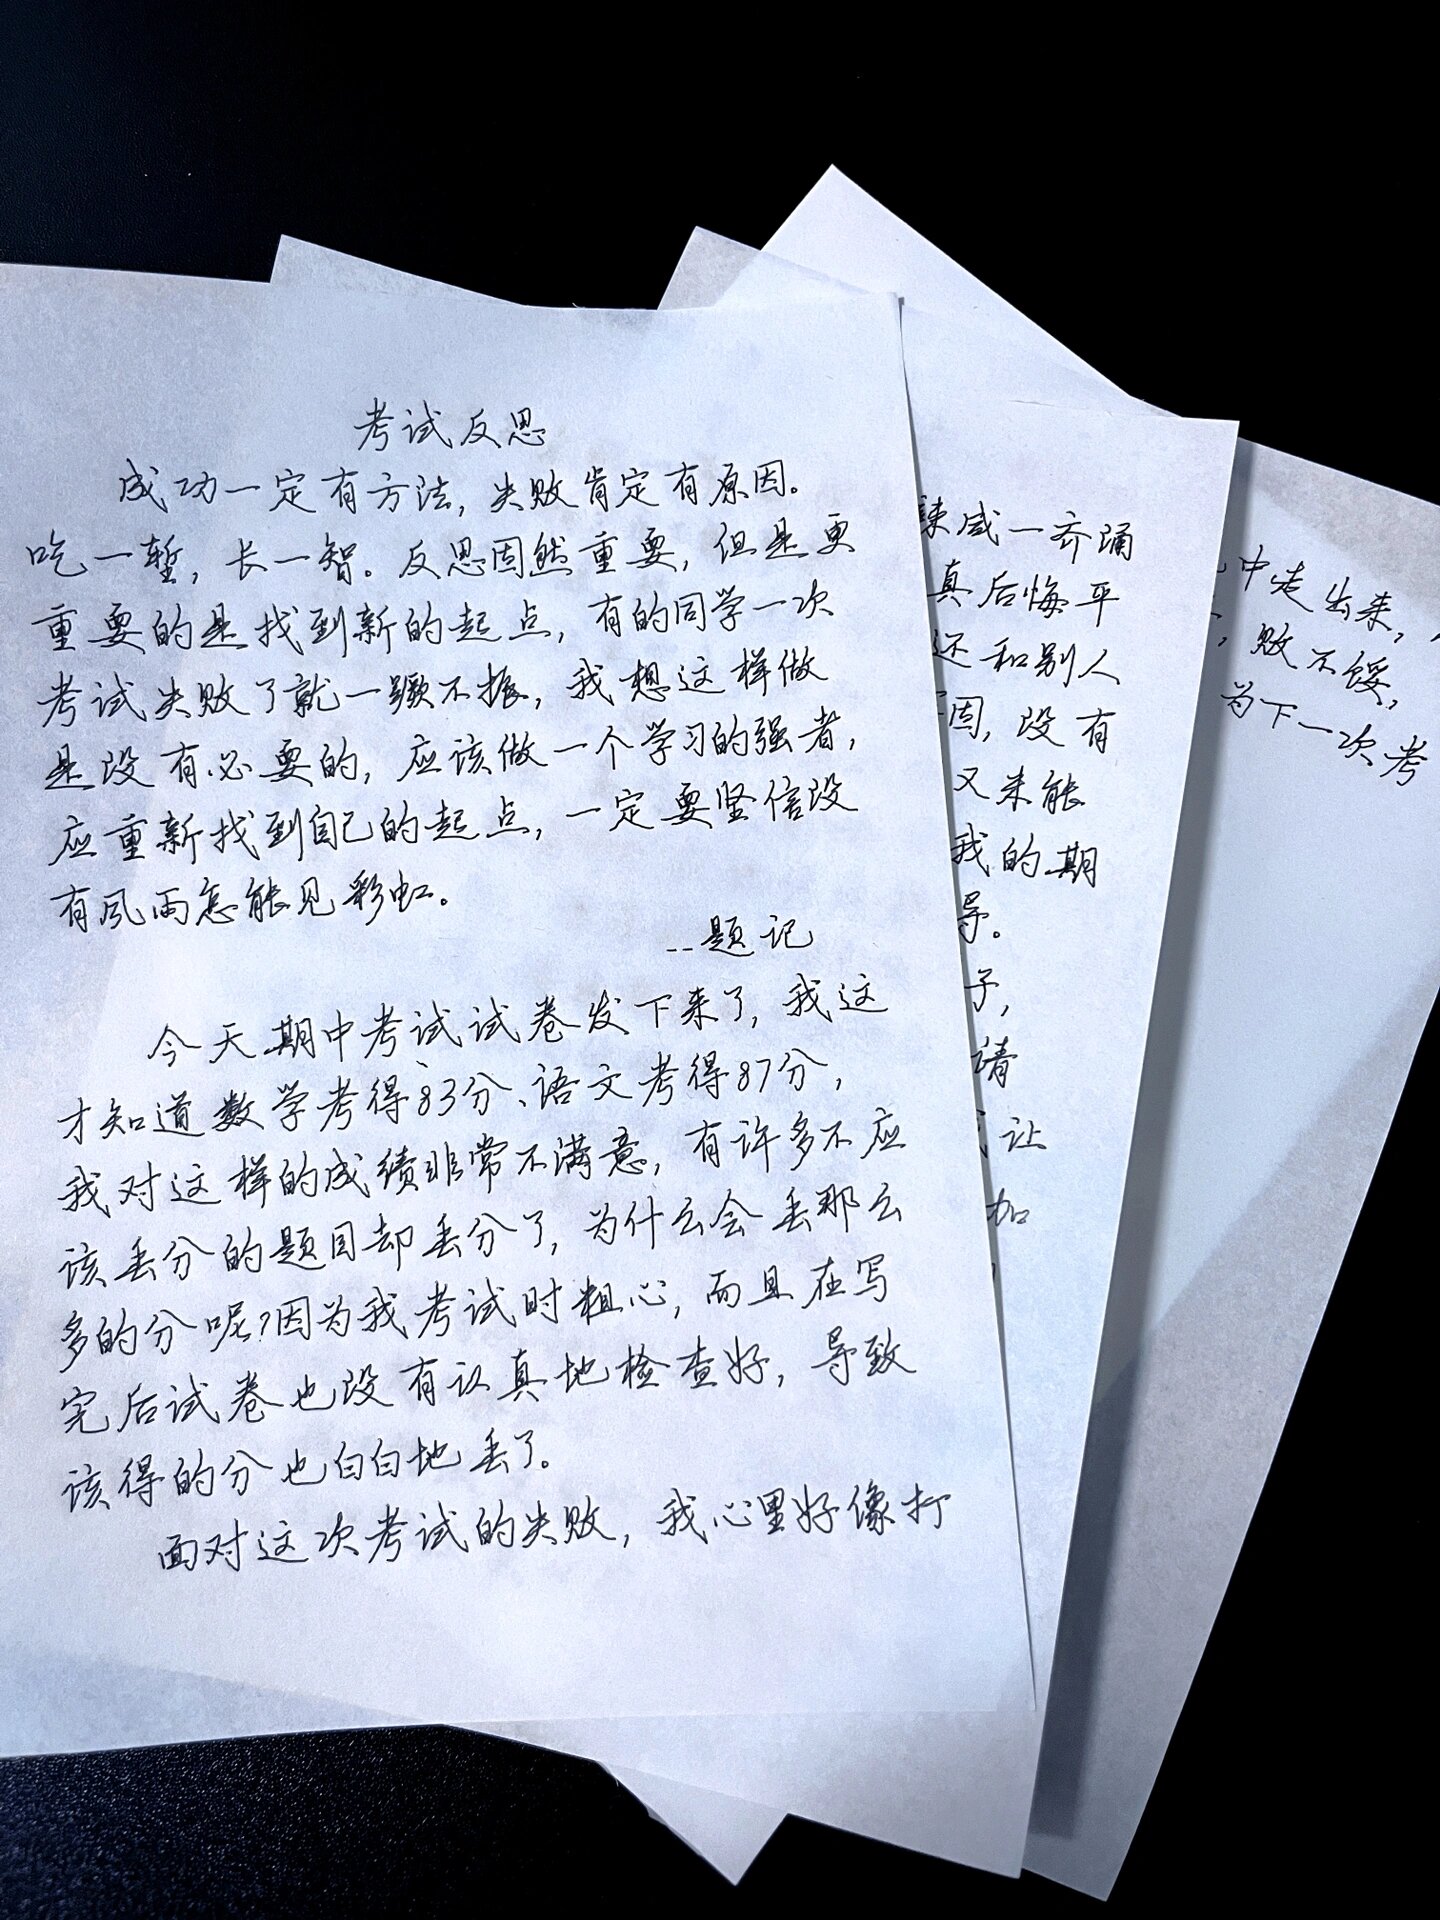 考试反思
成功一定有方法，失败肯定有原因。
吃一堑，长一智。反思固然重要，但是更
重要的是找到新的起点，有的同学一次
考试失败了就一蹶不振，我想这样做
是没有必要的，应该做一个学习的强者，
应重新找到自己的起点，一定要坚信没
有风雨怎能见彩虹。
--题记
今天期中考试试卷发下来了，我这
才知道数学考得83分、语文考得87分，
我对这样的成绩非常不满意，有许多不应
该丢分的题目却丢分了，为什么会丢那么
多的分呢?因为我考试时粗心，而且在写
完后试卷也没有认真地检查好，导致
该得的分也白白地丢了。
面对这次考试的失败，我心里好像打
辣咸一齐涌
真后悔平
还和别人
因，没有
又来能
我的期
导。
子，
请
让
加
中走出来，
，败不馁，
为下一次考